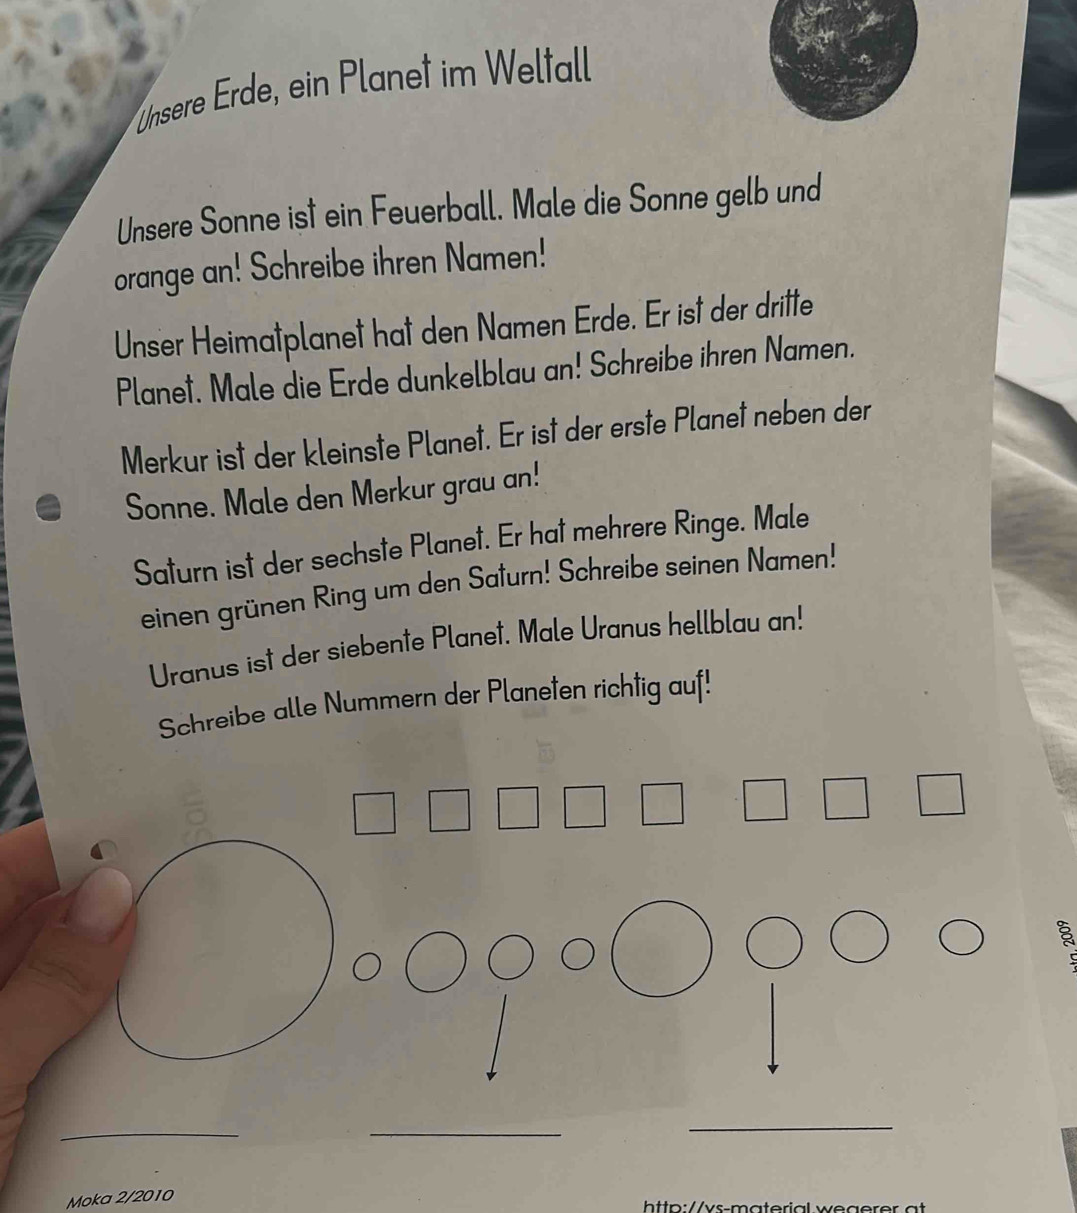 Unsere Erde, ein Planet im Weltall
Unsere Sonne ist ein Feuerball. Male die Sonne gelb und
orange an! Schreibe ihren Namen!
Unser Heimatplanet hat den Namen Erde. Er ist der dritte
Planet. Male die Erde dunkelblau an! Schreibe ihren Namen.
Merkur ist der kleinste Planet. Er ist der erste Planet neben der
Sonne. Male den Merkur grau an!
Saturn ist der sechste Planet. Er hat mehrere Ringe. Male
einen grünen Ring um den Saturn! Schreibe seinen Namen!
Uranus ist der siebente Planet. Male Uranus hellblau an!
Schreibe alle Nummern der Planeten richtig auf!
Moka 2/2010
http://vs-material.wegerer.at
2009